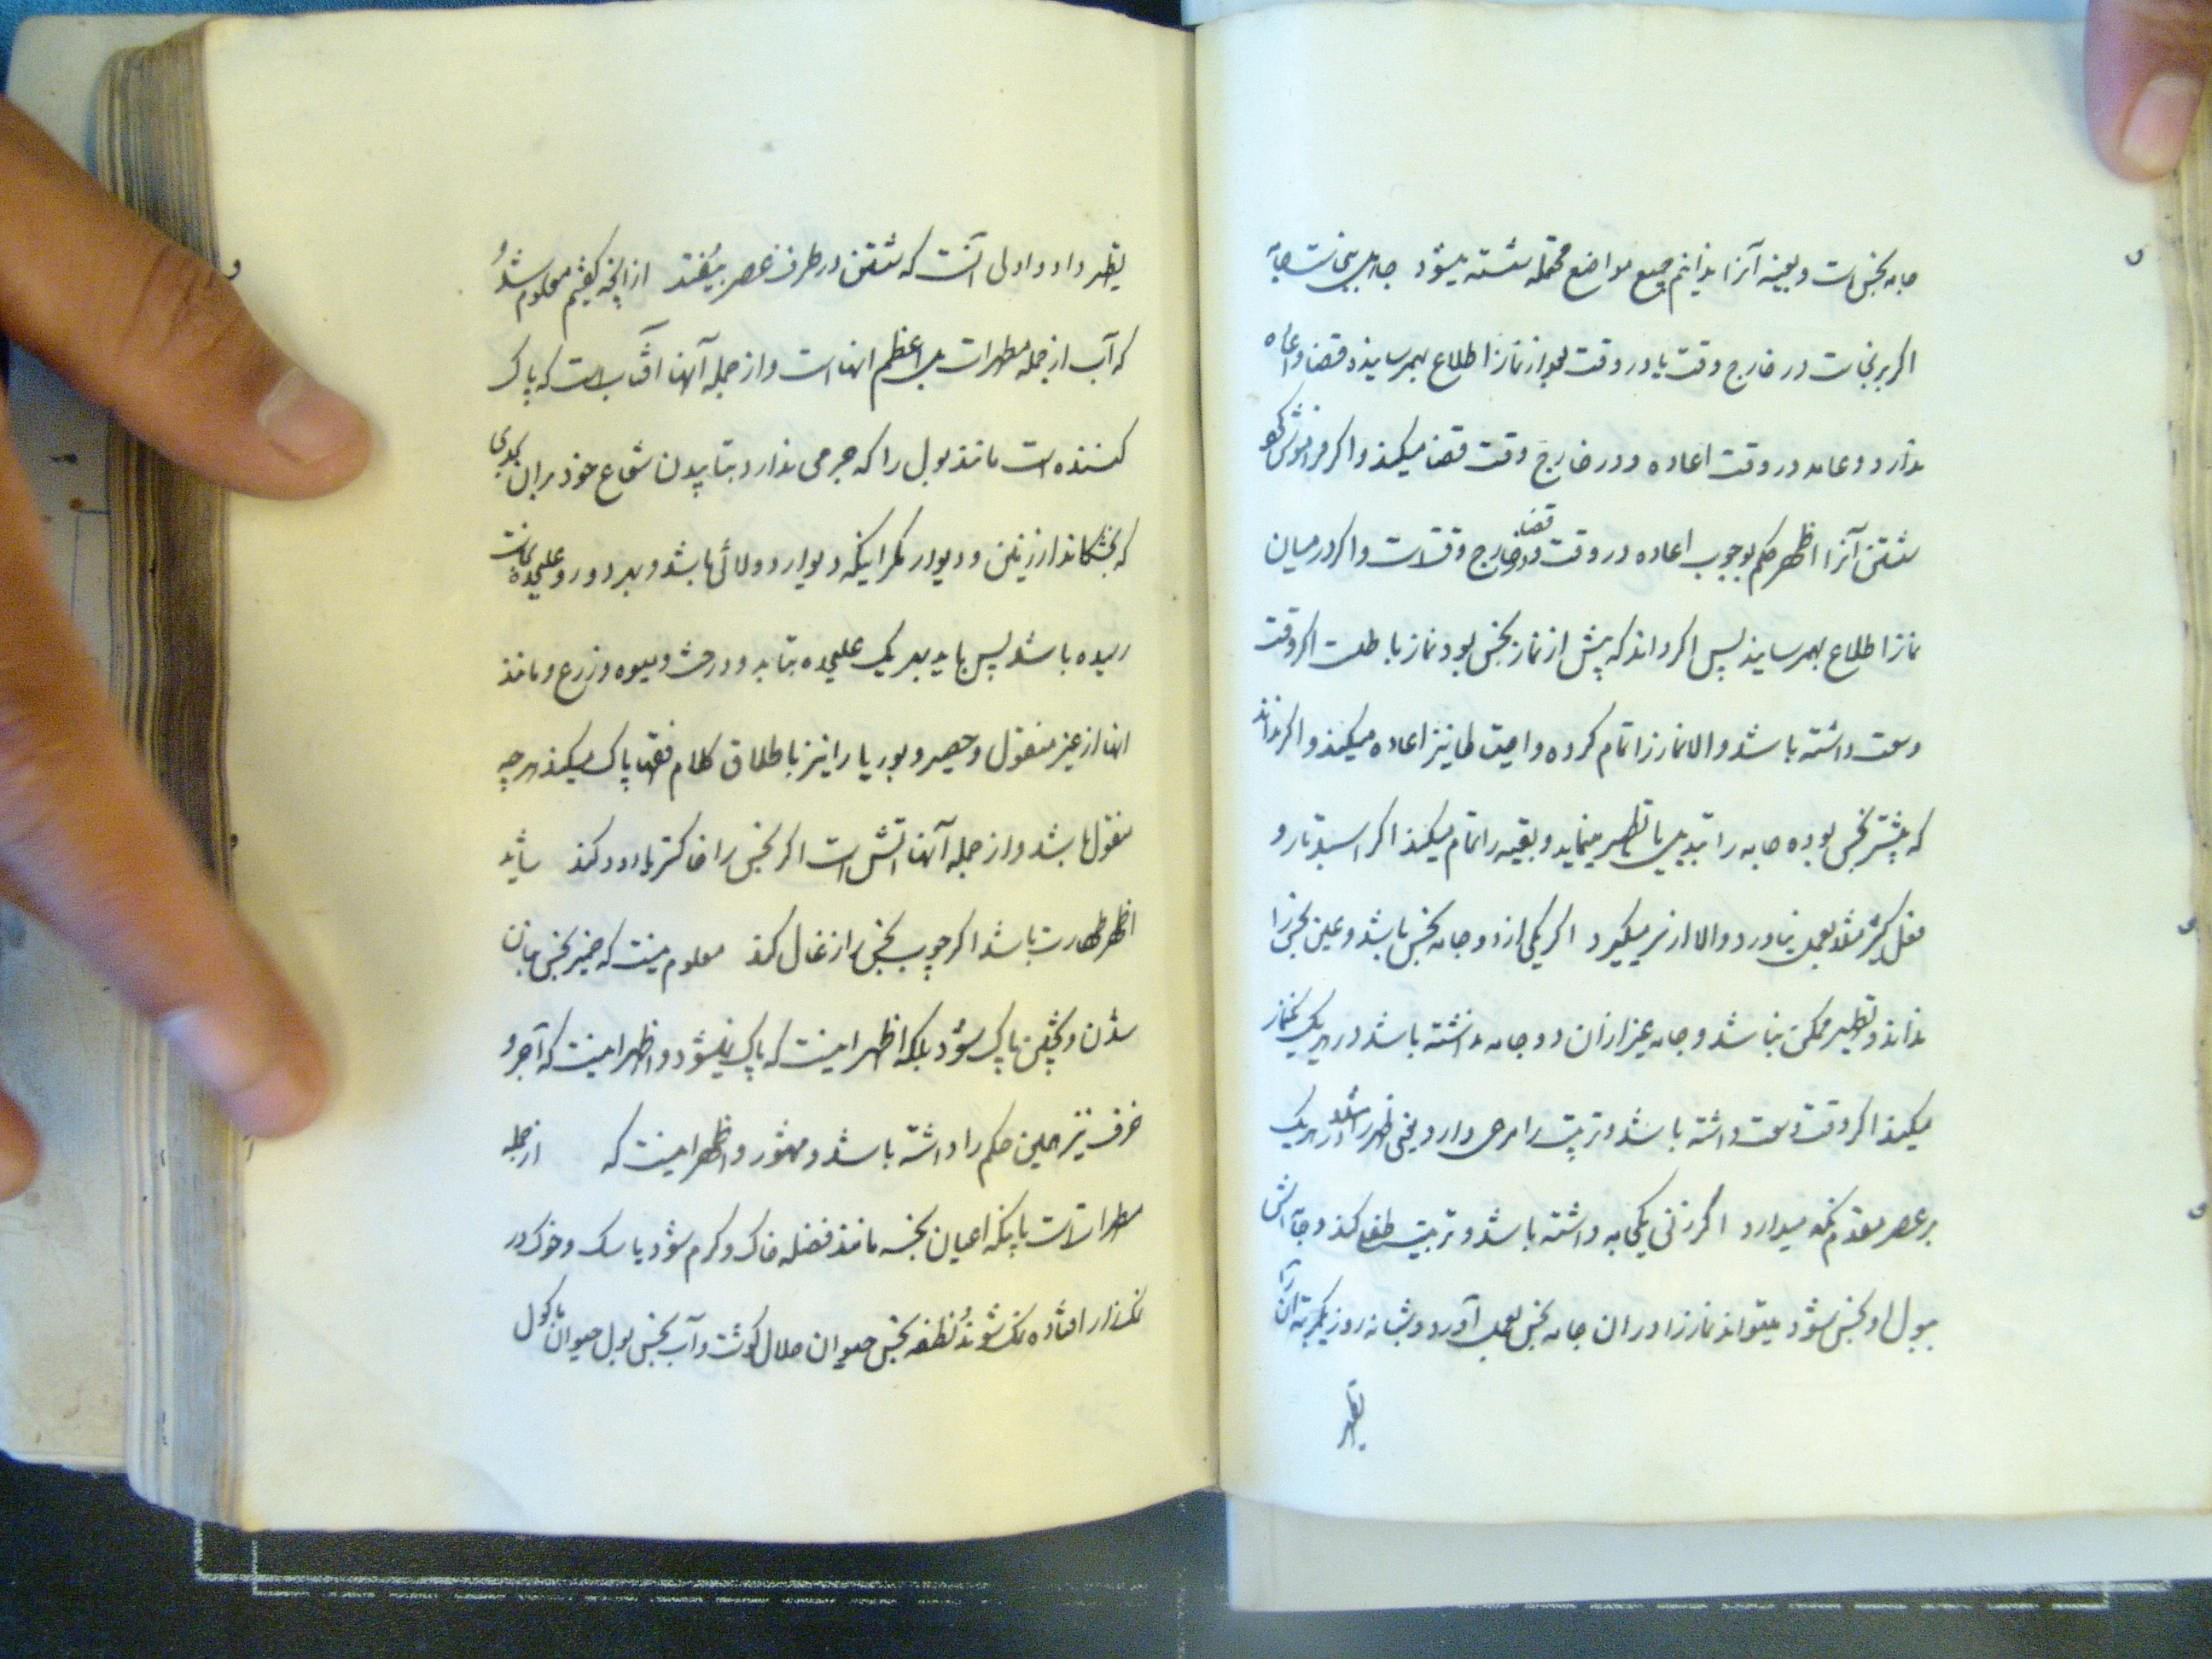 جامه نجس است و بعینه آنرا بدانیم جمیع مواضع محتمله شسته میشود جاهل بنجاست جامه
اگر بر نجاست در خارج وقت یا در وقت بعد از نماز اطلاع بهمرساند قضا و اعاده
ندارد و عامد در وقت اعاده و در خارج وقت قضا میکند و اگر فراموش کند
شستن آنرا اظهر حکم بوجوب اعاده در وقت و قضا در خارج وقتست و اگر در میان
نماز اطلاع بهمرساند پس اگر داند که پیش از نماز نجس بود نماز باطلست اگر وقت
وسعت داشته باشد والا نماز را تمام کرده و احتیاطا نیز اعاده میکند و اگر نداند
که پیشتر نجس بوده جامه را تبدیل یا تطهیر مینماید و بقیه را تمام میکند اگر استدبار و
فعل کثیر مثلا بعمل نیاورد والا از سر میگیرد اگر یکی از دو جامه نجس باشد و عین نجس را
نداند و تطهیر ممکن نباشد و جامه غیر از آن دو جامه نداشته باشد در هر یک یک نماز
میکند اگر وقت وسعت داشته باشد و ترتیب را مرعی دارد یعنی ظهر را مثلا در هر یک
بر عصر مقدم نگه میدارد اگر زنی یک جامه داشته باشد و تربیت طفل کند و جامه‌اش
ببول او نجس شود میتواند نماز را در ان جامه نجس بعمل آورد و شبانه روز یکمرتبه آن را
تطهیر
تطهیر داد و اولی آنست که شستن در طرف عصر بیفتد از آنچه گفتیم معلوم شد
که آب از جمله مطهرات بل اعظم انهاست و از جمله آنها آفتاب است که پاک
کننده است مانند بول را که جرمی ندارد بتابیدن شعاع خود بر ان بنحوی
که بخشکاند از زمین و دیوار مگر اینکه دیوار دولائی باشد و بهر دو رو علیحده نجاست
رسیده باشد پس باید بهر یک علیحده بتابد و درخت و میوه و زرع و مانند
انها از غیر منقول و حصیر و بوریا را نیز باطلاق کلام فقها پاک میکند هر چه
منقول باشد و از جمله آنها آتش است اگر نجس را خاکستر یا دود کند شاید
اظهر طهارت باشد اگر چوب نجس را زغال کند معلوم نیست که خمیر نجس بنان
شدن و پختن پاک شود بلکه اظهر اینست که پاک نمیشود و اظهر اینست که آجر و
خزف نیز همین حکم را داشته باشد و مشهور و اظهر اینست که از جمله
مطهراتست یا اینکه اعیان نجسه مانند فضله خاک و کرم شود یا سگ و خوک در
نمکزار افتاده نمک شوند نطفه نجس حیوان حلال گوشت و آب نجس بول حیوان ماکول